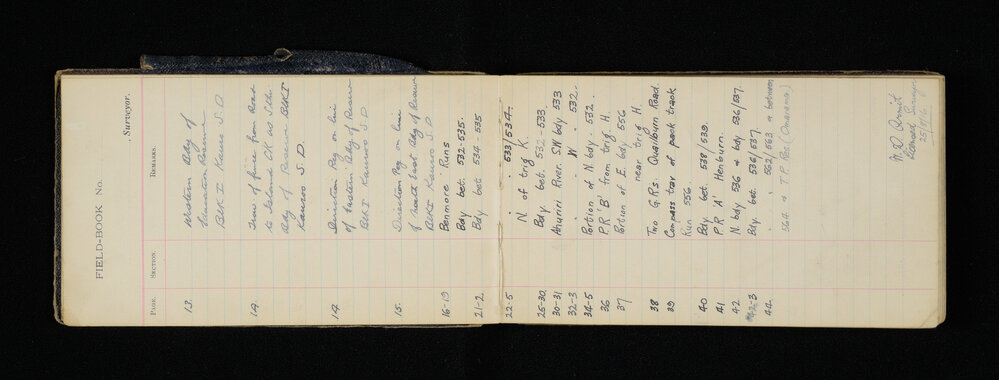 FIELD-BOOK No.
Surveyor.
PAGE. SECTION. REMARKS.
13. Western Bdy of
Education Reserve
Blk I Kauroo S.D.
14. Line of fence from Road
to Sth
Bdy of Reserve Blk I
Kauroo S.D.
14. Direction Peg on line
of Eastern Bdy of Reserve
Blk I Kauroo S.D
15. Direction Peg on line
of North East Bdy of Reserve
Blk I Kauroo S.D
16-19 Benmore Runs
Bdy bet. 532-535.
21-2. Bdy bet 534 535
22-5 " " 533/534.
N. of trig K.
25-30. Bdy bet. 532-533.
30-31 Ahuriri River. S.W. bdy 533
32-3 " W " 532.
34-5 Portion of N. bdy. 532.
36 P.R 'B' from trig. H.
37 Portion of E. bdy 556
near trig H.
38 Two G.R's. Quailburn Road.
39 Compass trav of pack track
Run 556.
40 Bdy bet. 538/539.
41 P R 'A' Henburn.
42 N. bdy 536 & bdy 536/537.
42-3 Bdy. bet. 536/537.
44. " " 562/563 & between
564 & T.P. Res (Omarama.)
Licensed Surveyor